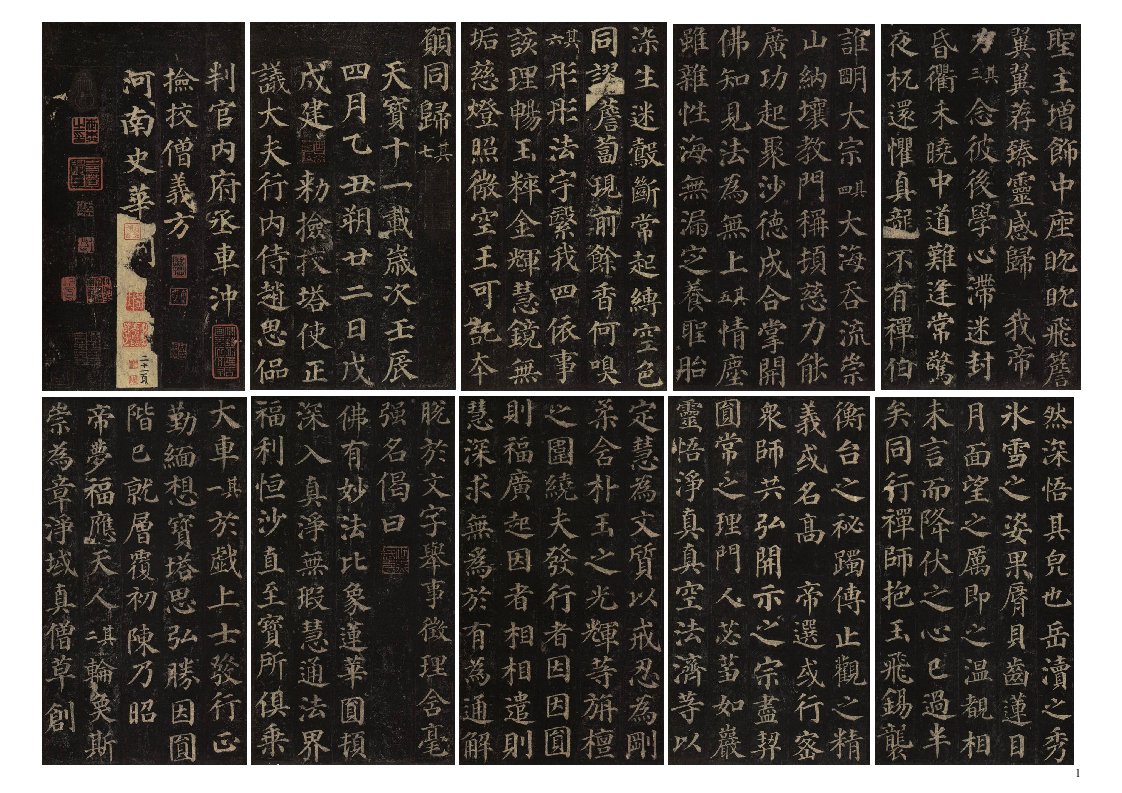 聖主增飾中座眈眈飛簷
翼翼荐臻靈感歸 我帝
力其三念彼後學心滯迷封
昏衢未曉中道難逢常驚
夜枙還懼真龍不有禪伯
誰明大宗其四大海吞流崇
山納壤教門稱頓慈力能
廣功起聚沙德成合掌開
佛知見法為無上其五情塵
雖雜性海無漏定養聖胎
染生迷鷇斷常起縛空色
同謬薝蔔現前餘香何嗅
其六彤彤法宇繄我四依事
該理暢玉粹金輝慧鏡無
垢慈燈照微空王可託本
願同歸其七
天寶十一載歲次壬辰
四月乙丑朔廿二日戊
戌建 勑撿挍塔使正
議大夫行內侍趙思偘
判官內府丞車沖
撿挍僧義方
河南史華刻
然深悟其皃也岳瀆之秀
氷雪之姿果脣貝齒蓮目
月面望之厲即之溫覩相
未言而降伏之心已過半
矣同行禪師抱玉飛錫襲
衡台之秘躅傳止觀之精
義或名高 帝選或行密
衆師共弘開示之宗盡契
圓常之理門人苾芻如巖
靈悟淨真真空法濟等以
定慧為文質以戒忍為剛
柔含朴玉之光輝等旃檀
之圍繞夫發行者因因圓
則福廣起因者相相遣則
慧深求無為於有為通解
脫於文字舉事徵理含毫
强名偈曰
佛有妙法比象蓮華圓頓
深入 真淨無瑕慧通法界
福利恒沙直至寶所俱乘
大車其一於戲上士發行正
勤緬想寶塔思弘勝因圓
階已就層覆初陳乃昭
帝夢福應天人其二輪奐斯
崇為章淨域真僧草創
1